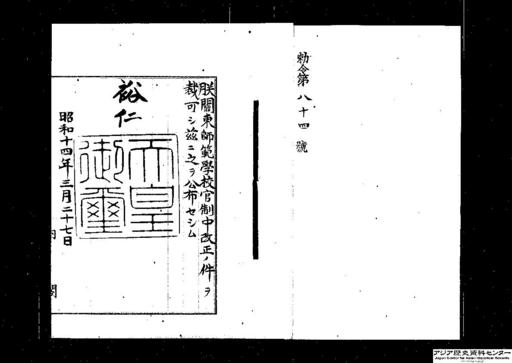 勅令第八十四號
朕關東師範學校官制中改正ノ件ヲ
裁可シ茲ニ之ヲ公布セシム
裕仁
天皇
御璽
昭和十四年三月二十七日
内閣
アジア歴史資料センター
Japan Center for Asian Historical Records